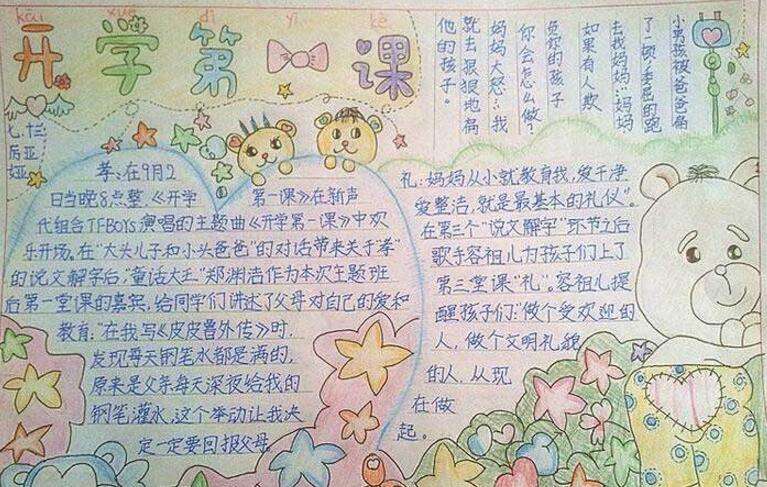 kai xue di yi kè
开学第一课
小男孩被爸爸扁
了一顿,委屈的跑
去找妈妈:"妈妈
如果有人欺
负你的孩子
你会怎么做?
妈妈大怒:"我
就去狠狠地扁
他的孩子。
孝:在9月2
日当晚8点整,《开学
第一课》在新声
代组合TFBOYS演唱的主题曲《开学第一课》中欢
乐开场,在"大头儿子和小头爸爸"的对话带来关于孝"
的说文解字后,"童话大王"郑渊洁作为本次主题班
后第一堂课的嘉宾,给同学们讲述了父母对自己的爱和
教育:"在我写《皮皮鲁外传》时,
发现每天钢笔水都是满的,
原来是父亲每天深夜给我的
钢笔灌水,这个举动让我决
定一定要回报父母。
礼:妈妈从小就教育我,爱干净
爱整洁,就是最基本的礼仪"。
在第三个"说文解字"环节之后
歌手容祖儿为孩子们上了
第三堂课"礼"。容祖儿提
醒孩子们:"做个受欢迎的
人,做个文明礼貌
的人,从现
在做
起。